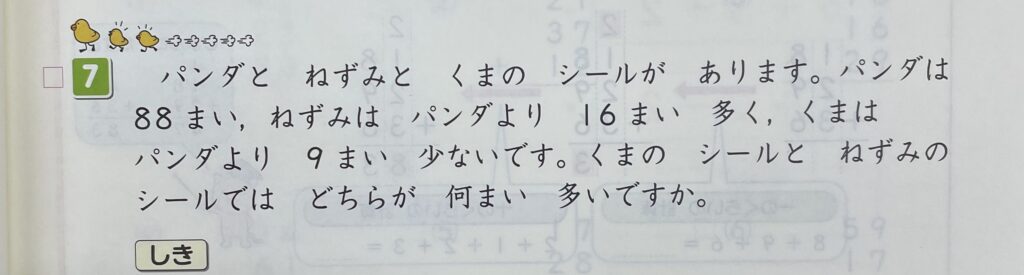 7 パンダと ねずみと くまの シールが あります。パンダは
88まい，ねずみは パンダより 16まい 多く，くまは
パンダより 9まい 少ないです。くまの シールと ねずみの
シールでは どちらが 何まい 多いですか。
しき